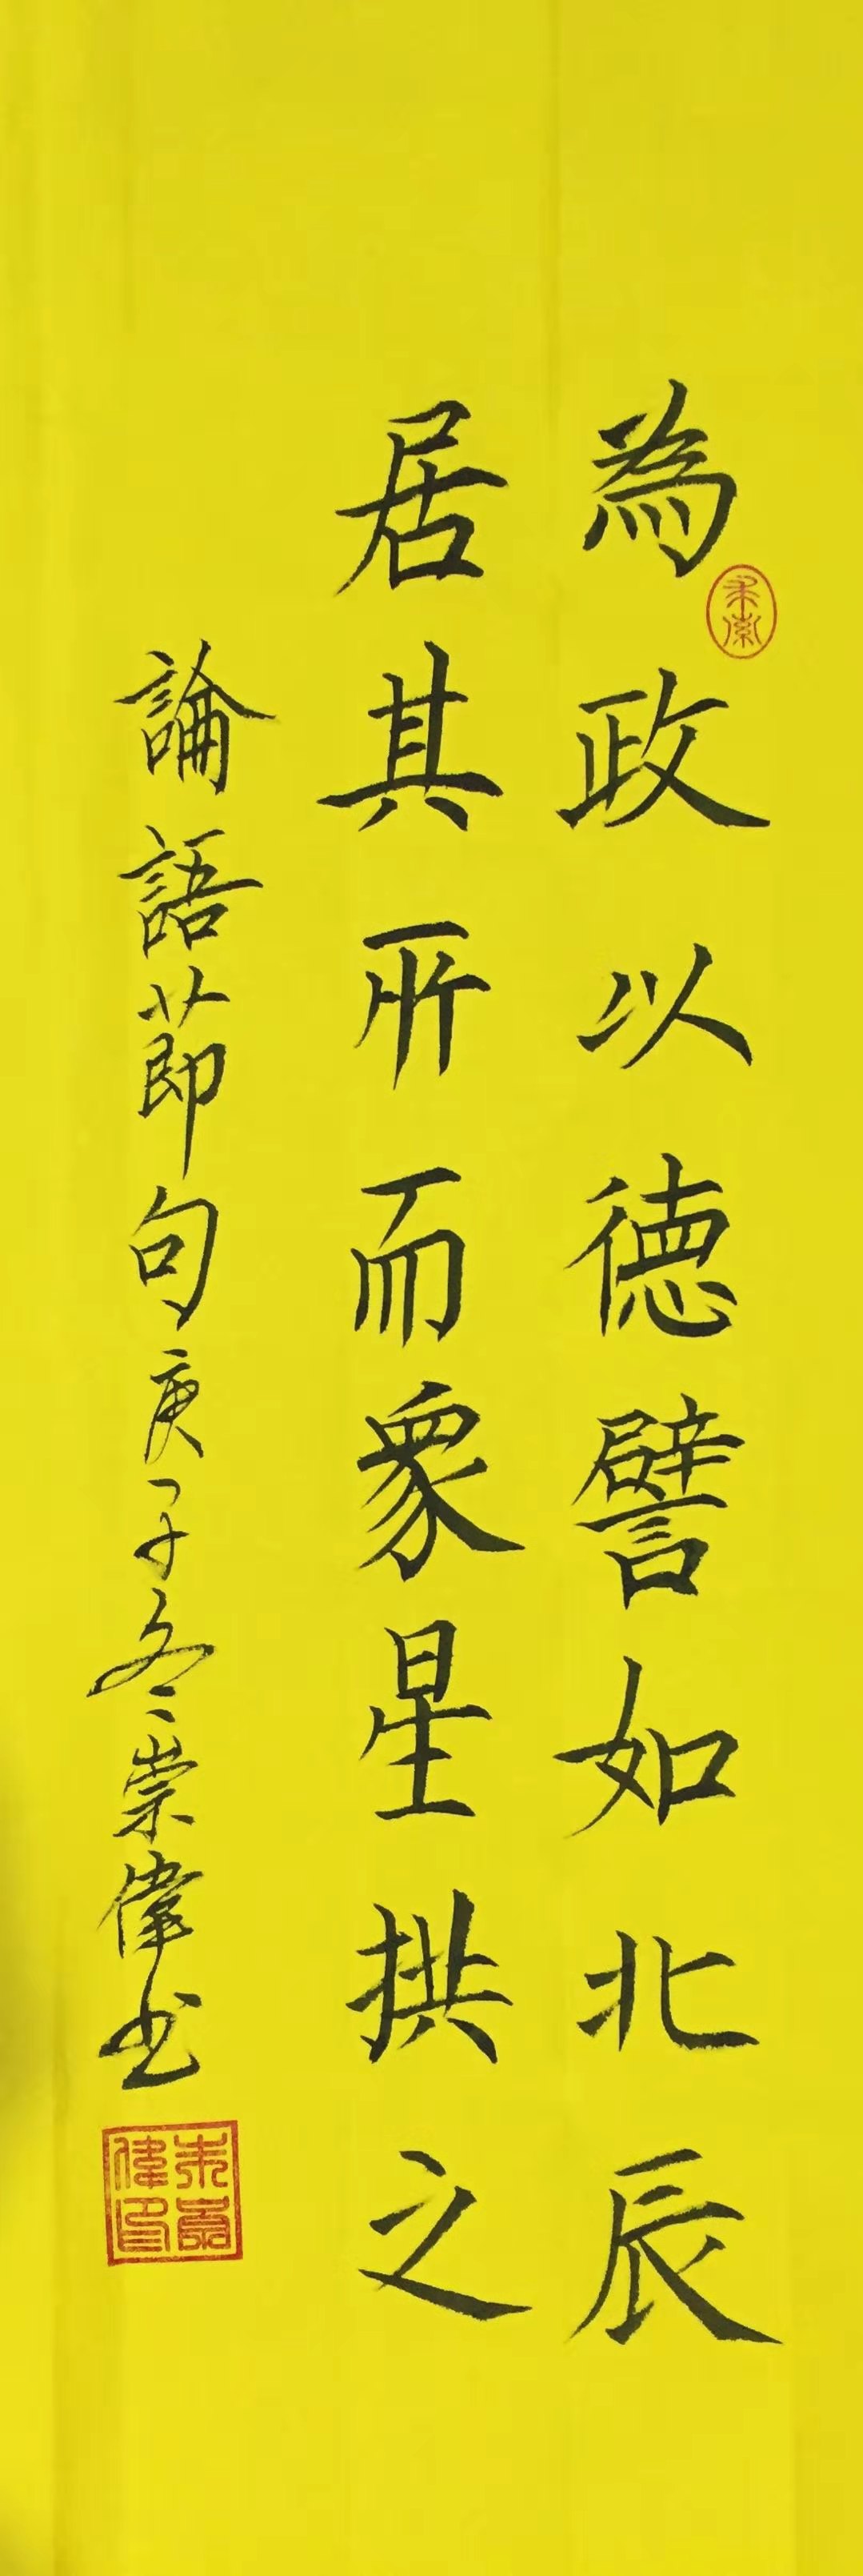 為政以德譬如北辰
居其所而眾星拱之
論語節句庚子冬崇偉书